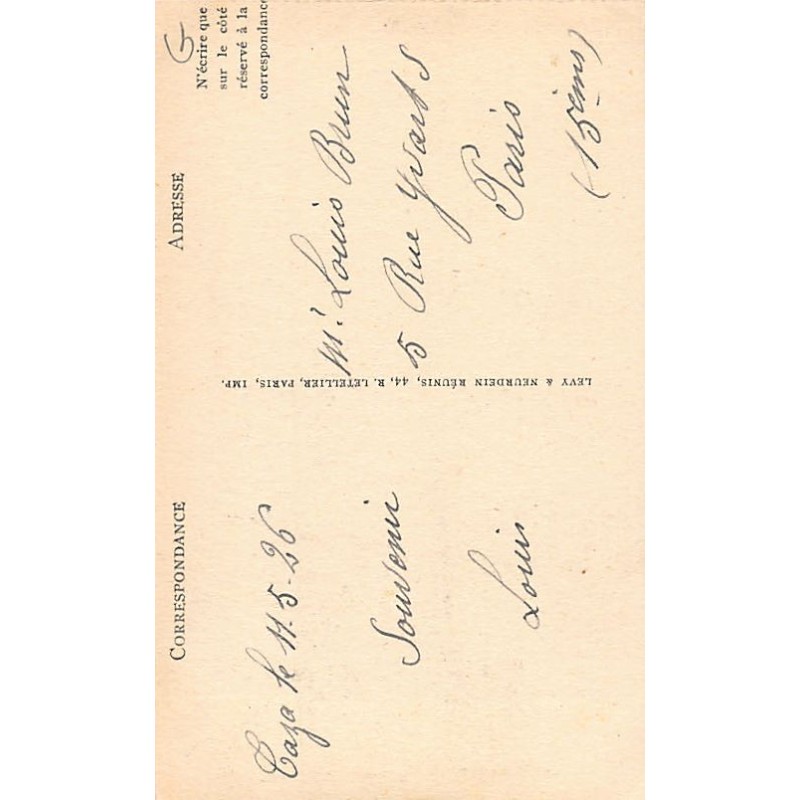 CORRESPONDANCE
Taza le 11.5-26
Souvenir
Louis
LEVY & NEURDEIN RÉUNIS, 44, R. LETELLIER, PARIS, IMP.
ADRESSE
N'écrire que
sur le côté
réservé à la
correspondance
Mr Louis Brun
5 Rue Yvart
Paris
(15ème)